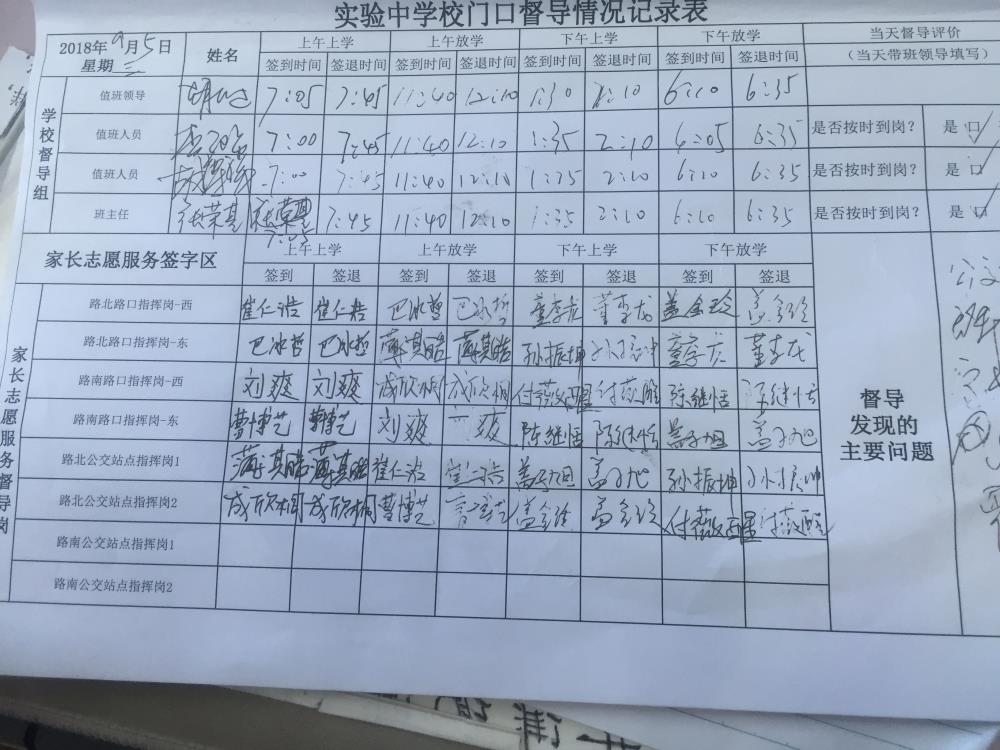 实验中学校门口督导情况记录表
2018年9月5日 星期三 姓名 上午上学 上午放学 下午上学 下午放学 当天督导评价
签到时间 签退时间 签到时间 签退时间 签到时间 签退时间 签到时间 签退时间 （当天带班领导填写）
学校督导组
值班领导 7:05 7:45 11:40 12:10 1:30 2:10 6:10 6:35
值班人员 7:00 7:45 11:40 12:10 1:35 2:10 6:05 6:35 是否按时到岗？ 是 口
值班人员 7:00 7:45 11:40 12:10 1:35 2:10 6:10 6:35 是否按时到岗？ 是 口
班主任 张荣基 张荣基 7:05 7:45 11:40 12:10 1:35 2:10 6:10 6:35 是否按时到岗？ 是 口
家长志愿服务签字区 上午上学 上午放学 下午上学 下午放学
签到 签退 签到 签退 签到 签退 签到 签退
家长志愿服务督导岗
路北路口指挥岗-西 崔仁浩 崔仁浩 巴冰哲 巴冰哲 董李龙 董李龙 盖金玲 盖金玲
路北路口指挥岗-东 巴冰哲 巴冰哲 薄其皓 薄其皓 孙振坤 孙振坤 董李龙 董李龙
路南路口指挥岗-西 刘爽 刘爽 成欣桐 成欣桐 付薇醒 付薇醒 陈继恬 陈继恬
路南路口指挥岗-东 曹博艺 曹博艺 刘爽 刘爽 陈继恬 陈继恬 盖子旭 盖子旭
路北公交站点指挥岗1 薄其皓 薄其皓 崔仁浩 崔仁浩 盖子旭 盖子旭 孙振坤 孙振坤
路北公交站点指挥岗2 成欣桐 成欣桐 曹博艺 曹博艺 盖金玲 盖金玲 付薇醒 付薇醒
路南公交站点指挥岗1
路南公交站点指挥岗2
督导
发现的
主要问题